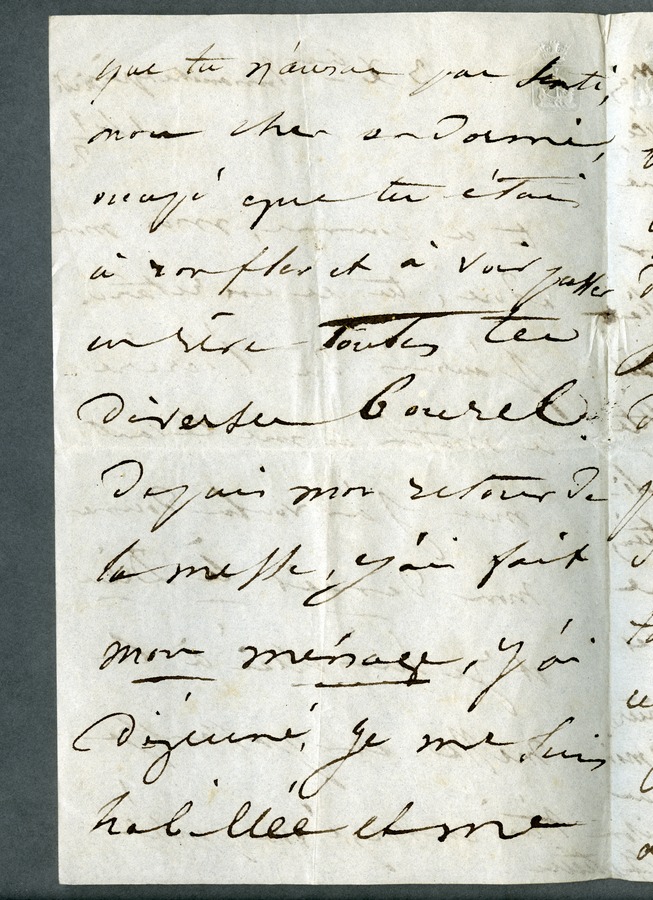 que tu n'auras pas senti,
mon cher endormi,
occupé que tu étais
à ronfler et à voir passer
en rêve toutes tes
diverses
Depuis mon retour de
la messe, j'ai fait
mon ménage, j'ai
déjeuné, je me suis
habillée et me